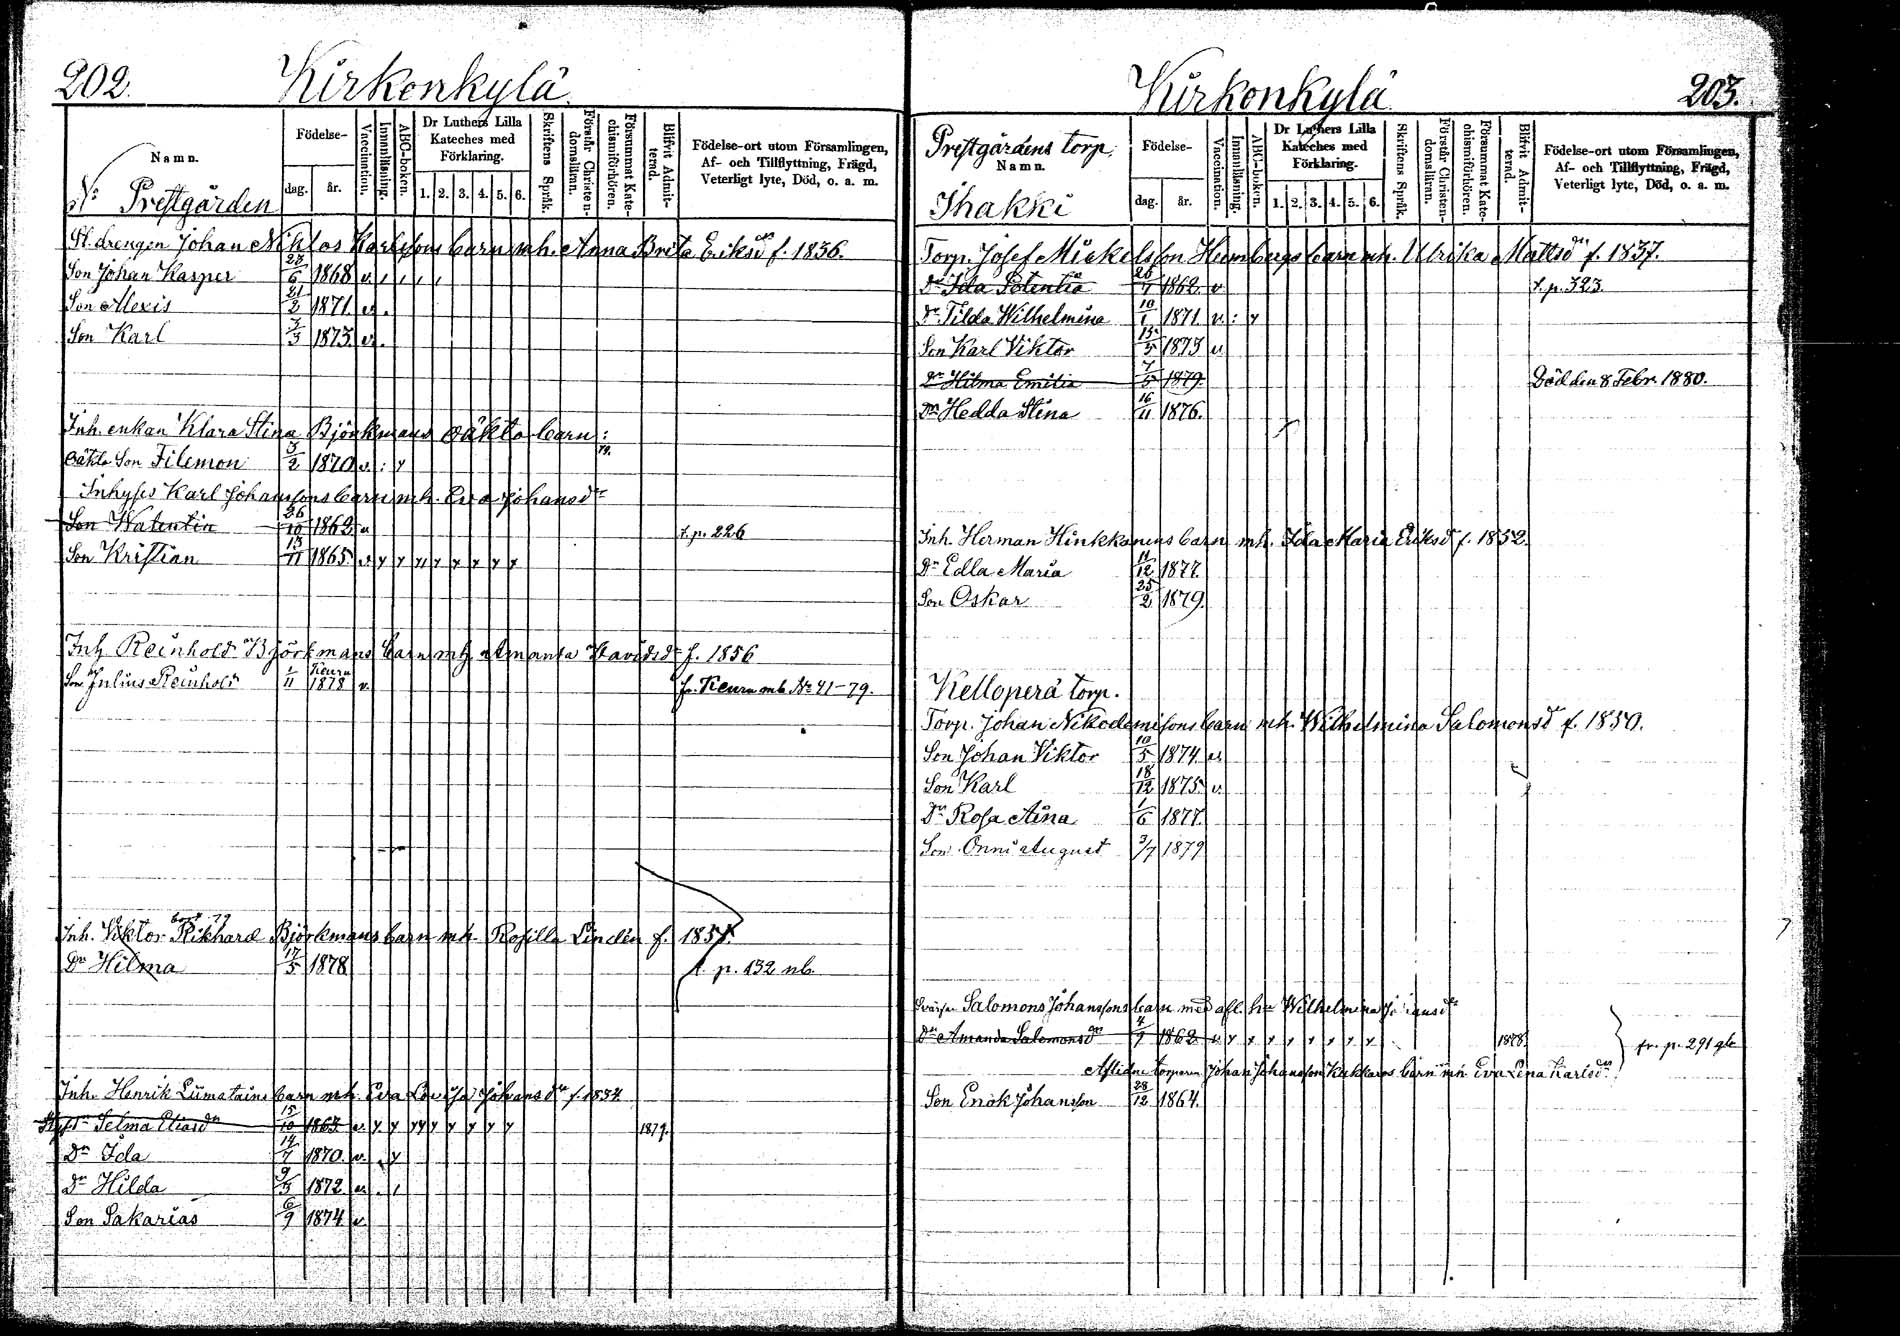 202.
Kirkonkylä
Namn.
Födelse-
dag.
år.
Vaccination.
Innanläsning.
ABC-boken.
Dr Luthers Lilla
Kateches med
Förklaring.
1. 2. 3. 4. 5. 6.
Skriftens Språk.
Förstår Christen-
domsläran.
Försummat Kate-
chismiförhören.
Blifvit Admit-
terad.
Födelse-ort utom Församlingen,
Af- och Tillflyttning, Frägd,
Veterligt lyte, Död, o. a. m.
No Prestgården
St.drengen Johan Niklas Karlssons barn mh. Anna Brita Eriksdr f. 1836.
Son Johan Kasper 23/6 1868 v.
Son Alexis 21/2 1871 v.
Son Karl 3/3 1873 v.
Inh. enkan Klara Stina Björkmans oäkta barn:
Oäkta Son Filemon 3/2 1870 v. : y 79.
Inhyses Karl Johanssons barn mh. Eva Johansdr
Son Walentin 26/10 1862 v t. p. 226
Son Kristian 13/11 1865 v y y y y y y y y
Inh Reinhold Björkmans barn mh Amanta Davidsdr f. 1856
Son Julius Reinhold 1/11 Keuru 1878 v. fr. Keuru mb No 41-79.
Inh. Viktor Rikhard Björkmans barn mh Rosilla Lindén f. 1857.
bort 79
Dr Hilma 17/5 1878 t. p. 132 nb.
Inh. Henrik Liimatains barn mh. Eva Lovisa Johansdr f. 1834
Styfdr Selma Eliasdr 15/10 1863 v. y y yy y y y y 1879.
Dr Ida 14/7 1870. v. . y
Dr Hilda 9/3 1872 v. . ,
Son Sakarias 6/9 1874 v.
Kirkonkylä
203.
Prestgårdens torp.
Namn.
Födelse-
dag.
år.
Vaccination.
Innanläsning.
ABC-boken.
Dr Luthers Lilla
Kateches med
Förklaring.
1. 2. 3. 4. 5. 6.
Skriftens Språk.
Förstår Christen-
domsläran.
Försummat Kate-
chismiförhören.
Blifvit Admit-
terad.
Födelse-ort utom Församlingen,
Af- och Tillflyttning, Frägd,
Veterligt lyte, Död, o. a. m.
Ihakki
Torp. Josef Mickelsson Heimbergs barn mh. Ulrika Mattsdr f. 1837.
Dr Ida Potentia 26/7 1862 v t. p. 323
Dr Tilda Wilhelmina 10/1 1871 v. : y
Son Karl Viktor 15/5 1873 v
Dr Hilma Emilia 7/5 1879. Död den 8 Febr. 1880.
Dr Hedda Stina 16/11 1876.
Inh. Herman Hinkkanens barn mh. Ida Maria Eriksdr f. 1852.
Dr Edla Maria 11/12 1877.
Son Oskar 25/2 1879.
Kelloperä torp.
Torp. Johan Nikodemissons barn mh. Wilhelmina Salomonsdr f. 1850.
Son Johan Viktor 10/5 1874. v.
Son Karl 18/12 1875 v.
Dr Rosa Aina 1/6 1877.
Son Onni August 3/7 1879
Salomons Johanssons barn med afl. h Wilhelmina Johansdr
Dr Amanda Salomonsdr 4/9 1862 v y y y y y y y y 1878. fr. p. 291 gb
Aflidne torparen Johan Johansson Kukkaros barn mh Eva Lena Karlsdr
Son Enok Johansson 28/12 1864.